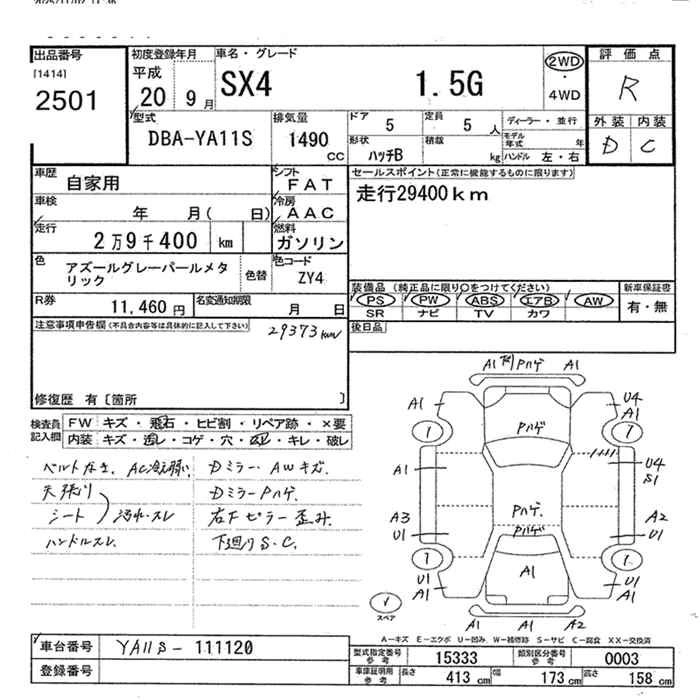 出品番号
[1414]
2501
初度登録年月
平成
20 9月
車名・グレード
SX4 1.5G
2WD
・
4WD
評価点
R
外装 内装
D C
型式
DBA-YA11S
排気量
1490
cc
ドア 5
定員 5 人
形状 ハッチB
積載 kg
ディーラー・並行
モデル年式 年
ハンドル 左・右
車歴 自家用
シフト FAT
車検 年 月( 日)
冷房 AAC
走行 2万9千400 km
燃料 ガソリン
色 アズールグレーパールメタリック
色替
色コード ZY4
R券 11,460円
名変通知期限 月 日
セールスポイント(正常に機能するものに限ります)
走行29400km
装備品(純正品に限り○をつけてください)
新車保証書
PS PW ABS エアB AW
SR ナビ TV カワ
有・無
後日品
注意事項申告欄(不具合内容等は具体的に記入して下さい)
29373km
修復歴 有[箇所 ]
検査員記入欄
FW キズ・飛石・ヒビ割・リペア跡・×要
内装 キズ・汚レ・コゲ・穴・・キレ・破レ
ベルトなき、AC冷え弱い
天張り
シート 汚れ・スレ
ハンドルスレ
Dミラー・AWキズ
Dミラー Pハゲ
右下ピラー歪み
下廻りS・C
A1 Pハゲ A1
A1
U4
A1
Pハゲ
A1
U4
S1
A3
U1
Pハゲ
Pハゲ
A2
U1
A1
U1
A1
U1
A1
A1 A1 A2
スペア
A-キズ E-エクボ U-凹み W-補修跡 S-サビ C-腐食 XX-交換済
車台番号 YA11S-111120
登録番号
型式指定番号 参考 15333
類別区分番号 参考 0003
車庫証明用 参考
長さ 413 cm
幅 173 cm
高さ 158 cm